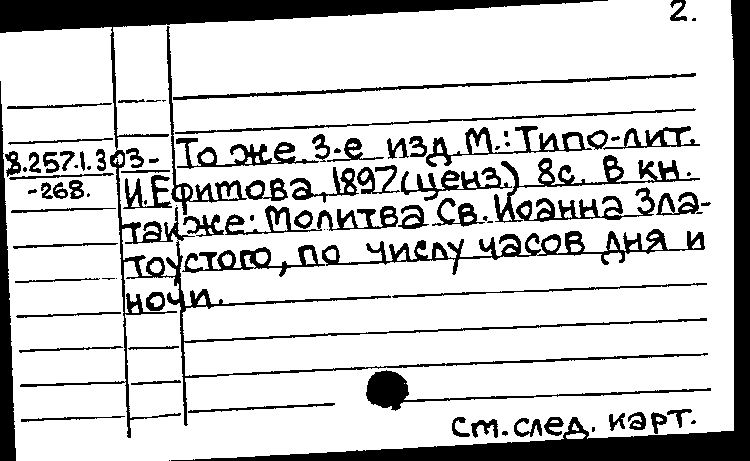 2.
8.257.1.303- То же. 3-е изд. М.: Типо-лит.
-268. И. Ефимова, 1897 (ценз.) 8с. В кн.
также: Молитва Св. Иоанна Зла-
тоустого, по числу часов дня и
ночи.
см. след. карт.